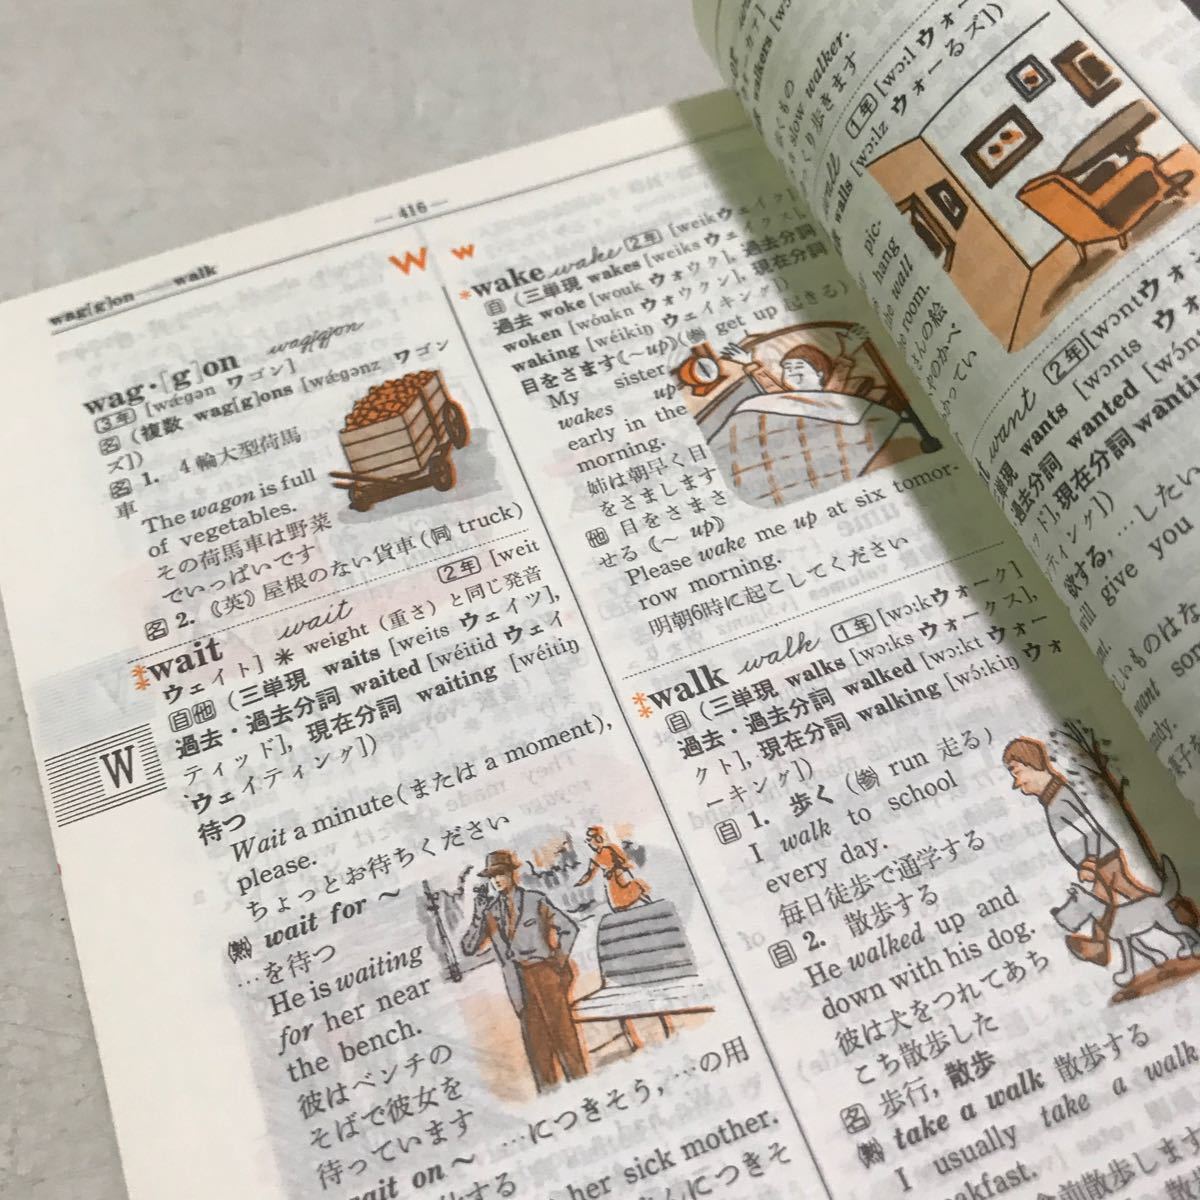 — 416 —
wag[g]on — walk
W w
wag·[g]on wag[g]on
3年 [wǽgən ワゴン]
名 (複数 wag[g]ons [wǽgənz ワゴン
ズ])
名 1. 4輪大型荷馬
車
The wagon is full
of vegetables.
その荷馬車は野菜
でいっぱいです
名 2. 《英》屋根のない貨車(同 truck)
**wait wait 2年 [weit
ウェイト] * weight (重さ) と同じ発音
自他 (三単現 waits [weits ウェイツ],
過去・過去分詞 waited [wéitid ウェイ
ティッド], 現在分詞 waiting [wéitiŋ
ウェイティング])
待つ
Wait a minute (または a moment),
please.
ちょっとお待ちください
(熟) wait for ~
…を待つ
He is waiting
for her near
the bench.
彼はベンチの
そばで彼女を
待っています
wait on ~ …につきそう, …の用
her sick mother.
W
*wake wake 2年 [weik ウェイク]
自 (三単現 wakes [weiks ウェイクス],
過去 woke [wouk ウォウク], 過去分詞
woken [wóukn ウォウクン], 現在分詞
waking [wéikiŋ ウェイキング])
目をさます(~up)(参 get up 起きる)
My sister
wakes up
early in the
morning.
姉は朝早く目
をさまします
他 目をさまさ
せる (~ up)
Please wake me up at six tomor-
row morning.
明朝6時に起こしてください
**walk walk 1年 [wɔ:k ウォーク]
自 (三単現 walks [wɔ:ks ウォークス],
過去・過去分詞 walked [wɔ:kt ウォー
クト], 現在分詞 walking [wɔ́:kiŋ ウォ
ーキング])
自 1. 歩く (参 run 走る)
I walk to school
every day.
毎日徒歩で通学する
自 2. 散歩する
He walked up and
down with his dog.
彼は犬をつれてあち
こち散歩した
名 歩行, 散歩
(熟) take a walk 散歩する
I usually take a walk
walkers
slow walker.
くり歩きます
wall 1年 [wɔ:l ウォー
walls [wɔ:lz ウォーるズ])
pic-
hang
the wall
the room.
want 2年 [wɔnt ウォ
wants [wɔnts ウォ
過去分詞 wanted
現在分詞 wanting
ティング])
欲する, …したい
will give you
want som